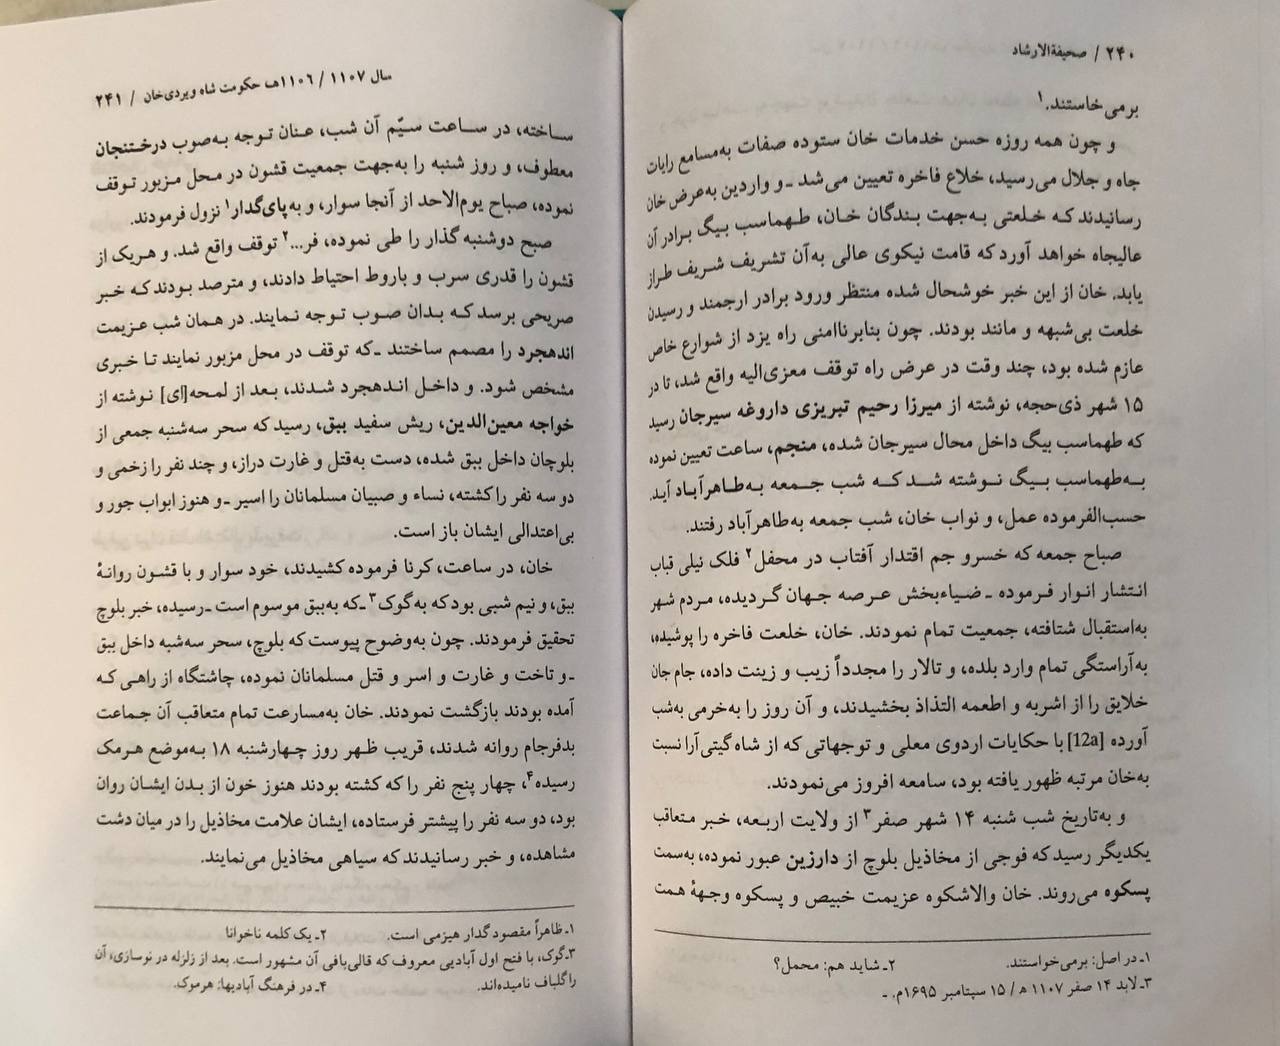 ۲۴۰ / صحیفةالارشاد
برمی‌خاستند.۱
و چون همه روزه حسن خدمات خان ستوده صفات به‌مسامع رایات
جاه و جلال می‌رسید، خلاع فاخره تعیین می‌شد ـ و واردین به‌عرض خان
رسانیدند که خلعتی به‌جهت بندگان خان، طهماسب بیگ برادر آن
عالیجاه خواهد آورد که قامت نیکوی عالی به‌آن تشریف شریف طراز
یابد. خان از این خبر خوشحال شده منتظر ورود برادر ارجمند و رسیدن
خلعت بی‌شبهه و مانند بودند. چون بنابرناامنی راه یزد از شوارع خاص
عازم شده بود، چند وقت در عرض راه توقف معزی‌الیه واقع شد، تا در
۱۵ شهر ذی‌حجه، نوشته از میرزا رحیم تبریزی داروغه سیرجان رسید
که طهماسب بیگ داخل محال سیرجان شده، منجم، ساعت تعیین نموده
به‌طهماسب بیگ نوشته شد که شب جمعه به‌طاهرآباد آید.
حسب‌الفرموده عمل، و نواب خان، شب جمعه به‌طاهرآباد رفتند.
صباح جمعه که خسرو جم اقتدار آفتاب در محفل۲ فلک نیلی قباب
انتشار انوار فرموده ـ ضیاءبخش عرصه جهان گردیده، مردم شهر
به‌استقبال شتافته، جمعیت تمام نمودند. خان، خلعت فاخره را پوشیده،
به‌آراستگی تمام وارد بلده، و تالار را مجدداً زیب و زینت داده، جام جان
خلایق را از اشربه و اطعمه التذاذ بخشیدند، و آن روز را به‌خرمی به‌شب
آورده [12a] با حکایات اردوی معلی و توجهاتی که از شاه گیتی‌آرا نسبت
به‌خان مرتبه ظهور یافته بود، سامعه افروز می‌نمودند.
و به‌تاریخ شب شنبه ۱۴ شهر صفر۳ از ولایت اربعه، خبر متعاقب
یکدیگر رسید که فوجی از مخاذیل بلوچ از دارزین عبور نموده، به‌سمت
پسکوه می‌روند. خان والاشکوه عزیمت خبیص و پسکوه وجهۀ همت
۱ـ در اصل: برمی‌خواستند. ۲ـ شاید هم: محمل؟
۳ـ لابد ۱۴ صفر ۱۱۰۷ ه‍ / ۱۵ سپتامبر ۱۶۹۵م. ـ
سال ۱۱۰۷ / ۱۱۰۶هـ حکومت شاه ویردی‌خان / ۲۴۱
ساخته، در ساعت سیّم آن شب، عنان توجه به‌صوب درختنجان
معطوف، و روز شنبه را به‌جهت جمعیت قشون در محل مزبور توقف
نموده، صباح یوم‌الاحد از آنجا سوار، و به‌پای‌گدار۱ نزول فرمودند.
صبح دوشنبه گدار را طی نموده، فر...۲ توقف واقع شد. و هریک از
قشون را قدری سرب و باروط احتیاط دادند، و مترصد بودند که خبر
صریحی برسد که بدان صوب توجه نمایند. در همان شب عزیمت
اندهجرد را مصمم ساختند ـ که توقف در محل مزبور نمایند تا خبری
مشخص شود. و داخل اندهجرد شدند، بعد از لمحه[ای] نوشته از
خواجه معین‌الدین، ریش سفید ببق، رسید که سحر سه‌شنبه جمعی از
بلوچان داخل ببق شده، دست به‌قتل و غارت دراز، و چند نفر را زخمی و
دو سه نفر را کشته، نساء و صبیان مسلمانان را اسیر ـ و هنوز ابواب جور و
بی‌اعتدالی ایشان باز است.
خان، در ساعت، کرنا فرموده کشیدند، خود سوار و با قشون روانۀ
ببق، و نیم شبی بود که به‌گوک۳ ـ که به‌ببق موسوم است ـ رسیده، خبر بلوچ
تحقیق فرمودند. چون به‌وضوح پیوست که بلوچ، سحر سه‌شبه داخل ببق
ـ و تاخت و غارت و اسر و قتل مسلمانان نموده، چاشتگاه از راهی که
آمده بودند بازگشت نمودند. خان به‌مسارعت تمام متعاقب آن جماعت
بدفرجام روانه شدند، قریب ظهر روز چهارشنبه ۱۸ به‌موضع هرمک
رسیده۴، چهار پنج نفر را که کشته بودند هنوز خون از بدن ایشان روان
بود، دو سه نفر را پیشتر فرستاده، ایشان علامت مخاذیل را در میان دشت
مشاهده، و خبر رسانیدند که سیاهی مخاذیل می‌نمایند.
۱ـ ظاهراً مقصود گدار هیزمی است. ۲ـ یک کلمه ناخوانا
۳ـ گوک، با فتح اول آبادیی معروف که قالی‌بافی آن مشهور است. بعد از زلزله در نوسازی، آن
را گلباف نامیده‌اند. ۴ـ در فرهنگ آبادیها: هرموک.